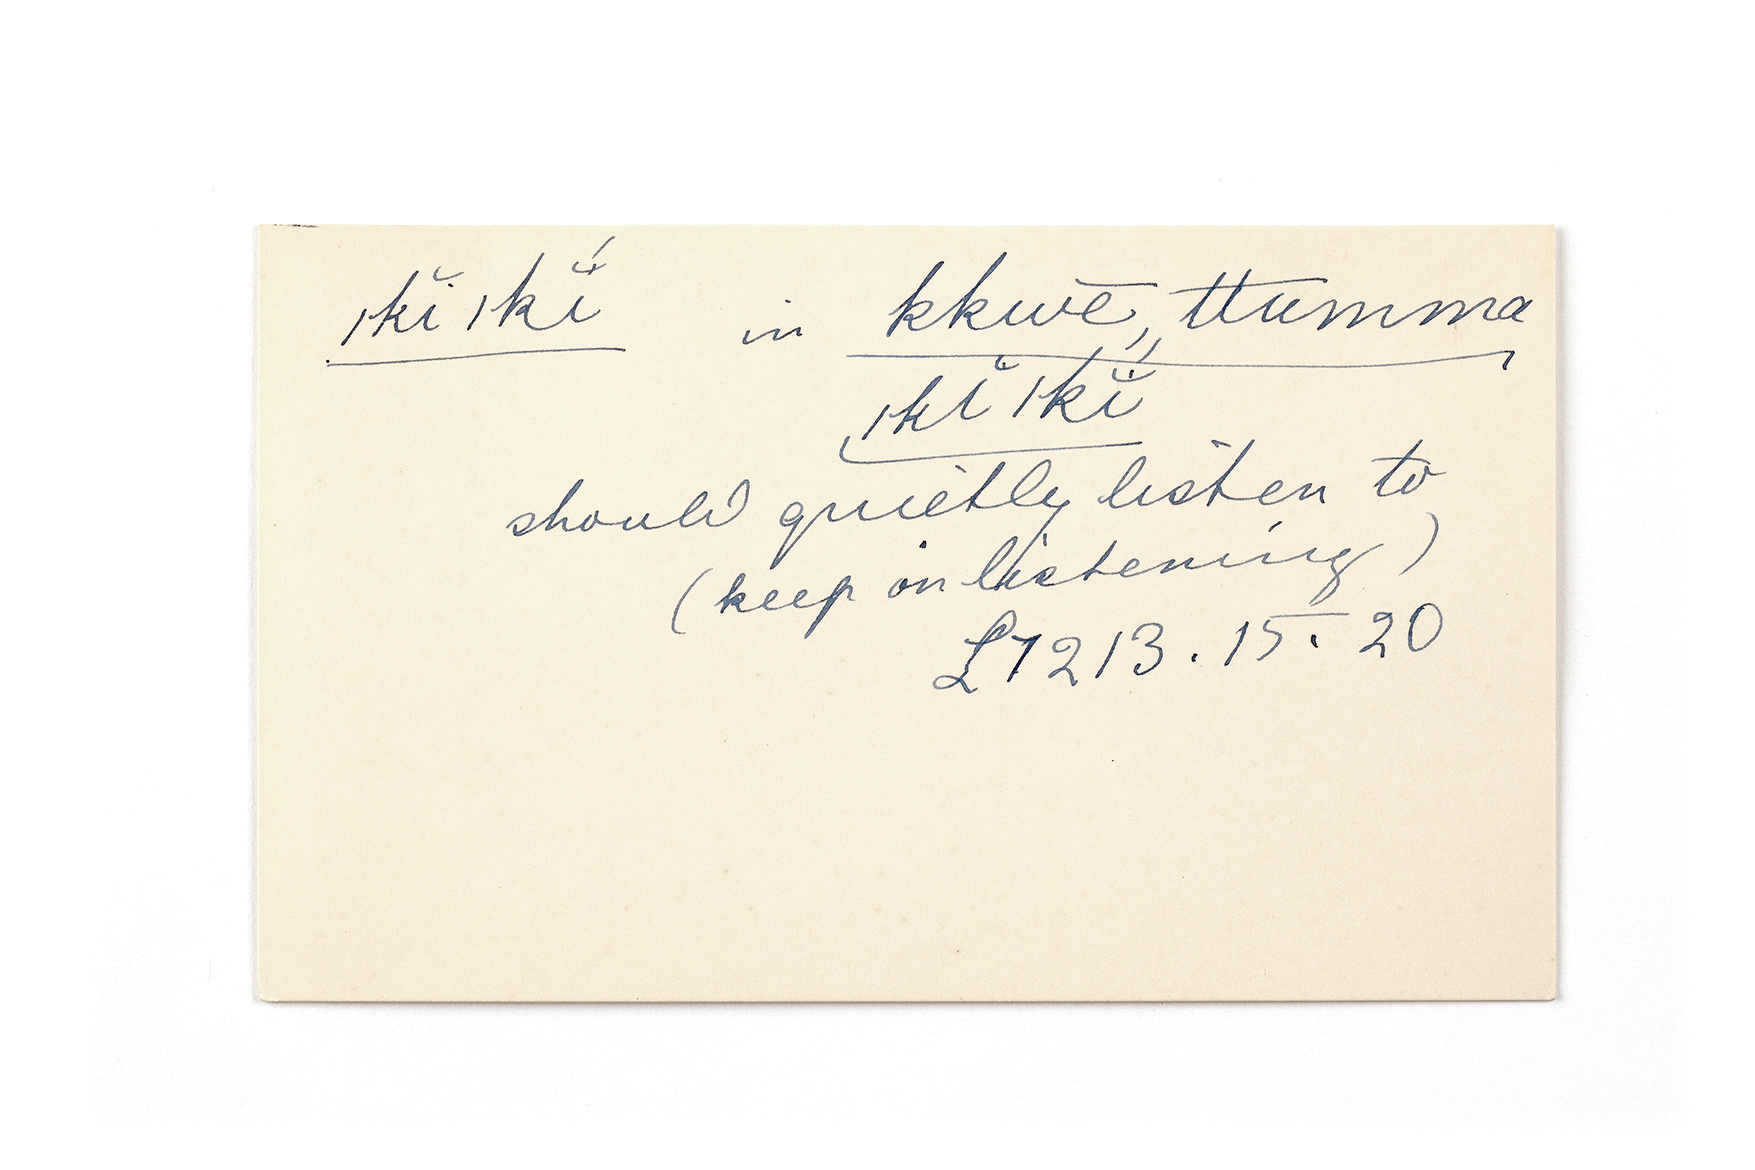 ǀkĭ ǀkĭ́ in kkwē, ttumma
ǀkĭ ǀkĭ́
should quietly listen to
(keep on listening)
L7213.15. 20